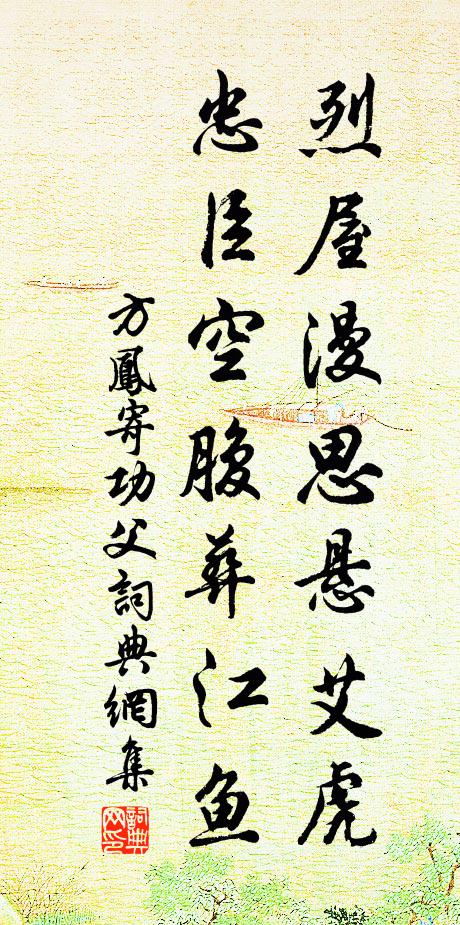 烈屋漫思悬艾虎
忠臣空腹葬江鱼
方鳳寄功父詞典網集
詞典網印